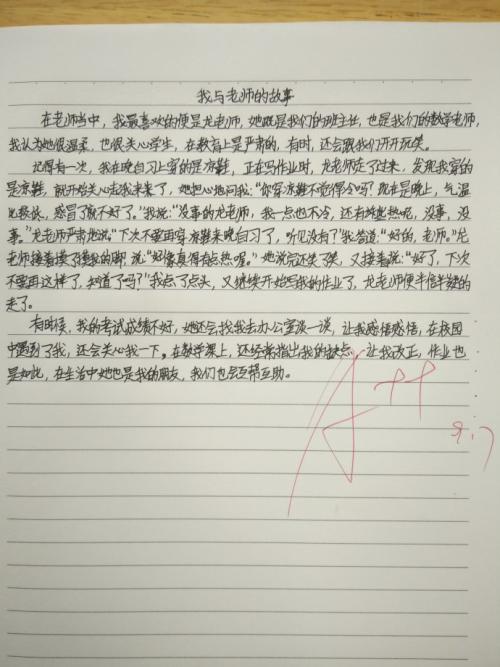 我与老师的故事
在老师当中，我最喜欢的便是龙老师，她既是我们的班主任，也是我们的数学老师，
我认为她很温柔，也很关心学生，在教育上是严肃的，有时，还会跟我们开开玩笑。
记得有一次，我在晚自习上穿的是凉鞋，正在写作业时，龙老师走了过来，发现我穿的
是凉鞋，就开始关心起我来了，她担心地问我："你穿凉鞋不觉得冷吗？现在是晚上，气温
比较低，感冒了就不好了。"我说："没事的龙老师，我一点也不冷，还有点热呢，没事，没
事。"龙老师严肃地说："下次不要再穿凉鞋来晚自习了，听见没有？"我答道："好的，老师。"龙
老师接着摸了摸我的脚，说："好像真得有点热喔。"她说完还笑了笑，又接着说："好了，下次
不要再这样了，知道了吗？"我点了点头，又继续开始写我的作业了，龙老师便半信半疑的
走了。
有时候，我的考试成绩不好，她还会找我去办公室谈一谈，让我感悟感悟，在校园
中遇到了我，还会关心我一下。在数学课上，还经常指出我的缺点，让我改正，作业也
是如此，在生活中她也是我的朋友，我们也会互帮互助。
A++
9.17